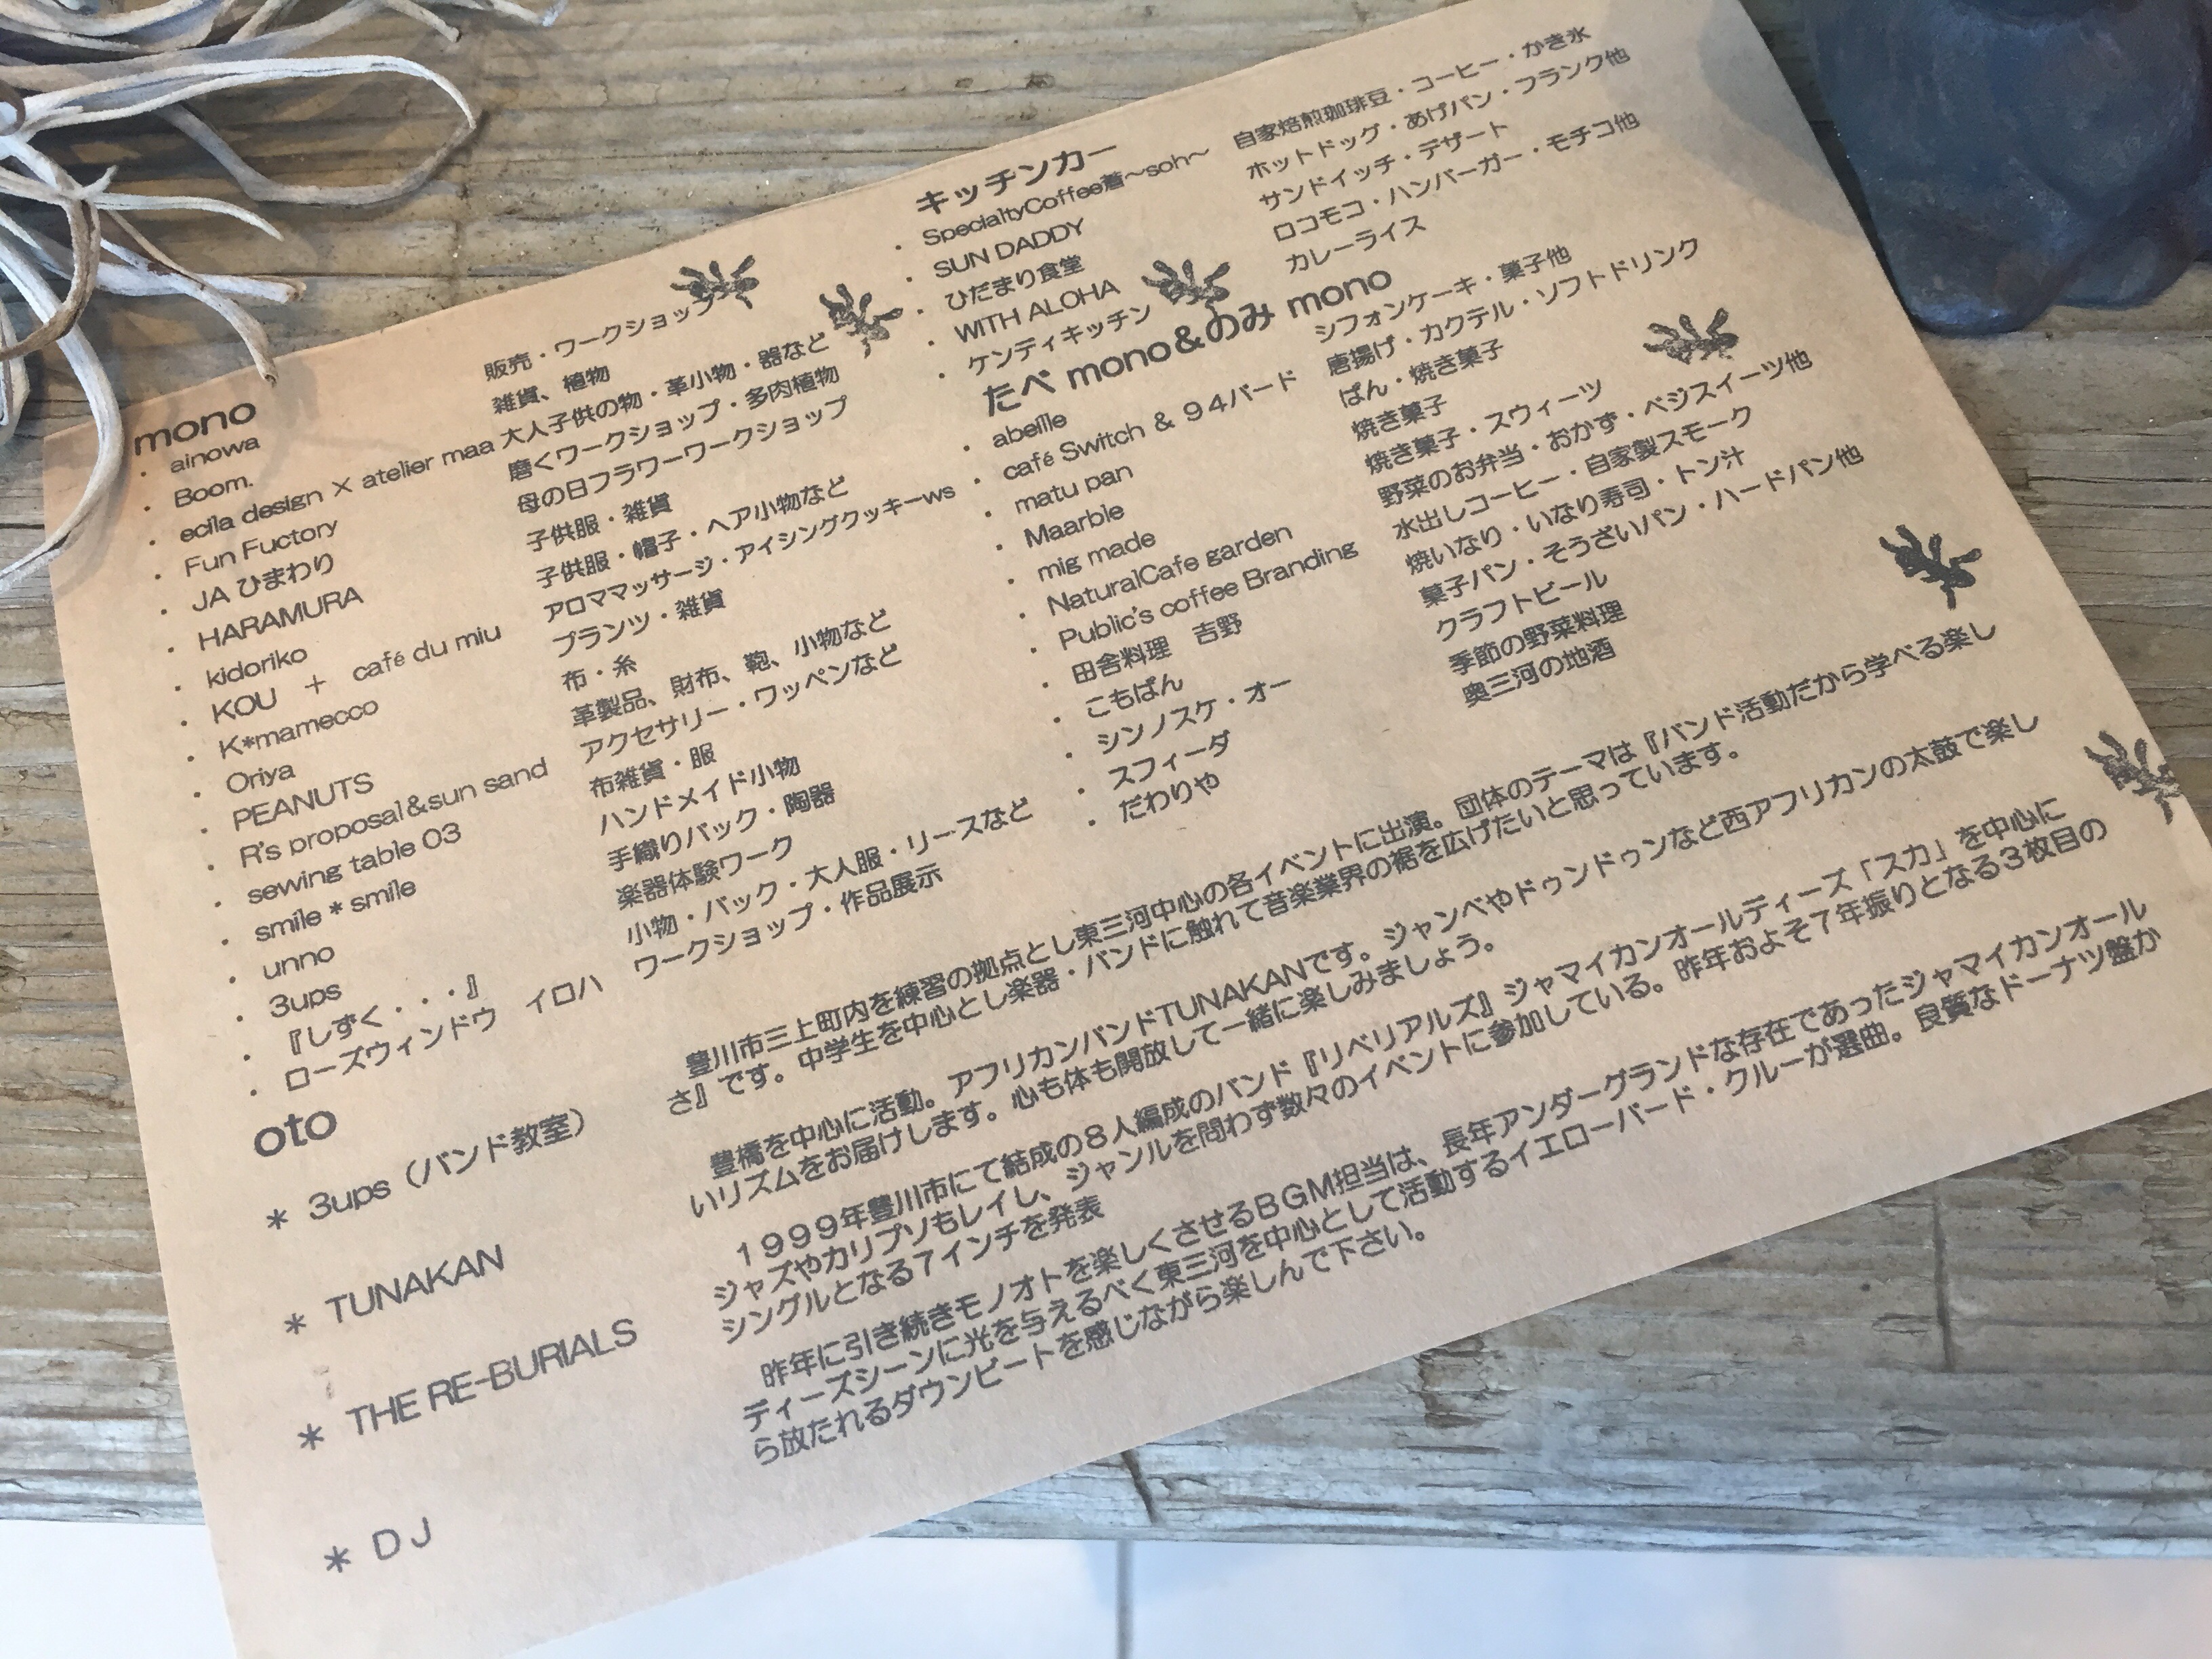 mono
・ ainowa 販売・ワークショップ
・ Boom. 雑貨、植物
・ ecila design × atelier maa 大人子供の物・革小物・器など
・ Fun Fuctory 磨くワークショップ・多肉植物
・ JA ひまわり 母の日フラワーワークショップ
・ HARAMURA 子供服・雑貨
・ kidoriko 子供服・帽子・ヘア小物など
・ KOU + café du miu アロママッサージ・アイシングクッキーws
・ K*mamecco プランツ・雑貨
・ Oriya 布・糸
・ PEANUTS 革製品、財布、鞄、小物など
・ R's proposal&sun sand アクセサリー・ワッペンなど
・ sewing table 03 布雑貨・服
・ smile*smile ハンドメイド小物
・ unno 手織りバック・陶器
・ 3ups 楽器体験ワーク
・ 『しずく・・・』 小物・バック・大人服・リースなど
・ ローズウィンドウ イロハ ワークショップ・作品展示
キッチンカー
・ SpecialtyCoffee蒼〜soh〜 自家焙煎珈琲豆・コーヒー・かき氷
・ SUN DADDY ホットドッグ・あげパン・フランク他
・ ひだまり食堂 サンドイッチ・デザート
・ WITH ALOHA ロコモコ・ハンバーガー・モチコ他
・ ケンティキッチン カレーライス
たべ mono&のみ mono
・ abeille シフォンケーキ・菓子他
・ café Switch & 94バード 唐揚げ・カクテル・ソフトドリンク
・ matu pan ぱん・焼き菓子
・ Maarble 焼き菓子
・ mig made 焼き菓子・スウィーツ
・ NaturalCafe garden 野菜のお弁当・おかず・ベジスイーツ他
・ Public's coffee Branding 水出しコーヒー・自家製スモーク
・ 田舎料理 吉野 焼いなり・いなり寿司・トン汁
・ こもぱん 菓子パン・そうざいパン・ハードパン他
・ シンノスケ・オー クラフトビール
・ スフィーダ 季節の野菜料理
・ だわりや 奥三河の地酒
oto
* 3ups（バンド教室） 豊川市三上町内を練習の拠点とし東三河中心の各イベントに出演。団体のテーマは『バンド活動だから学べる楽し
さ』です。中学生を中心とし楽器・バンドに触れて音楽業界の裾を広げたいと思っています。
* TUNAKAN 豊橋を中心に活動。アフリカンバンドTUNAKANです。ジャンベやドゥンドゥンなど西アフリカンの太鼓で楽し
いリズムをお届けします。心も体も開放して一緒に楽しみましょう。
* THE RE-BURIALS 1999年豊川市にて結成の8人編成のバンド『リベリアルズ』ジャマイカンオールディーズ「スカ」を中心に
ジャズやカリプソもレイし、ジャンルを問わず数々のイベントに参加している。昨年およそ7年振りとなる3枚目の
シングルとなる7インチを発表
* DJ 昨年に引き続きモノオトを楽しくさせるBGM担当は、長年アンダーグランドな存在であったジャマイカンオール
ディーズシーンに光を与えるべく東三河を中心として活動するイエローバード・クルーが選曲。良質なドーナツ盤か
ら放たれるダウンビートを感じながら楽しんで下さい。